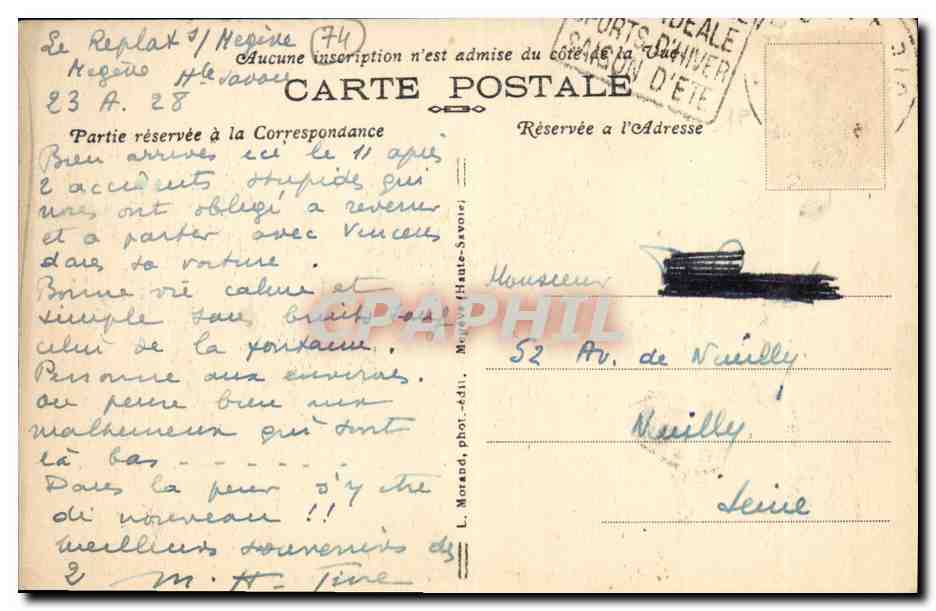 Le Replat s/ Megève (74)
Megève Hte Savoie
23 A. 28
Aucune inscription n'est admise du côté de la Vue
CARTE POSTALE
Partie réservée à la Correspondance
Réservée a l'Adresse
IDÉALE
SPORTS D'HIVER
SAISON D'ÉTÉ
Bien arrivés ici le 11 après
2 accidents stupides qui
nous ont obligé a revenir
et a partir avec
dans sa voiture.
Bonne vie calme et
simple sans bruits sauf
celui de la fontaine.
Personne aux environs.
on pense bien aux
malheureux qui sont
là bas - - - - - -
Dans la peur d'y être
de nouveau !!
Meilleurs souvenirs des
2 M. H-
L. Morand, phot.-édit. Megève (Haute-Savoie)
Monsieur
52 Av. de Neuilly
Neuilly
Seine
CPAPHIL